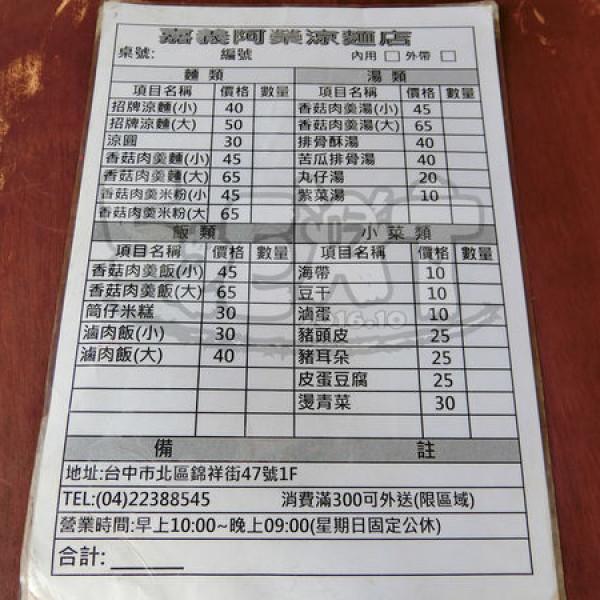 嘉義阿榮涼麵店
桌號: 編號 內用 □ 外帶 □
麵類 湯類
項目名稱 價格 數量 項目名稱 價格 數量
招牌涼麵(小) 40 香菇肉羹湯(小) 45
招牌涼麵(大) 50 香菇肉羹湯(大) 65
涼圓 30 排骨酥湯 40
香菇肉羹麵(小) 45 苦瓜排骨湯 40
香菇肉羹麵(大) 65 丸仔湯 20
香菇肉羹米粉(小 45 紫菜湯 10
香菇肉羹米粉(大 65
飯類 小菜類
項目名稱 價格 數量 項目名稱 價格 數量
香菇肉羹飯(小) 45 海帶 10
香菇肉羹飯(大) 65 豆干 10
筒仔米糕 30 滷蛋 10
滷肉飯(小) 30 豬頭皮 25
滷肉飯(大) 40 豬耳朵 25
皮蛋豆腐 25
燙青菜 30
備註
地址:台中市北區錦祥街47號1F
TEL:(04)22388545 消費滿300可外送(限區域)
營業時間:早上10:00~晚上09:00(星期日固定公休)
合計: